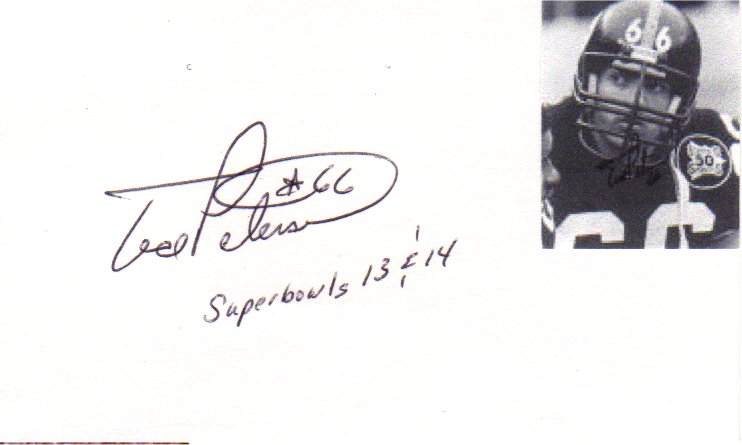 66
50
66
Ted Petersen #66
Superbowls 13 & 14